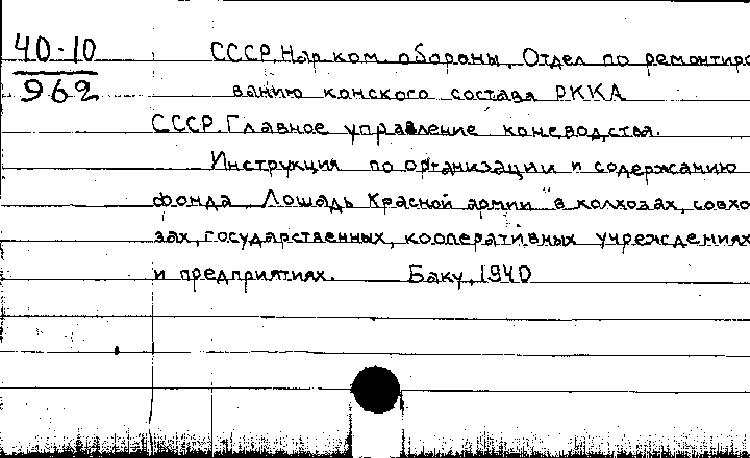 40-10
962
СССР. Нар. ком. обороны. Отдел по ремонтиро
ванию конского состава РККА
СССР. Главное управление коневодства.
Инструкция по организации и содержанию
фонда „Лошадь Красной армии" в колхозах, совхо
зах, государственных, кооперативных учреждениях
и предприятиях. Баку, 1940